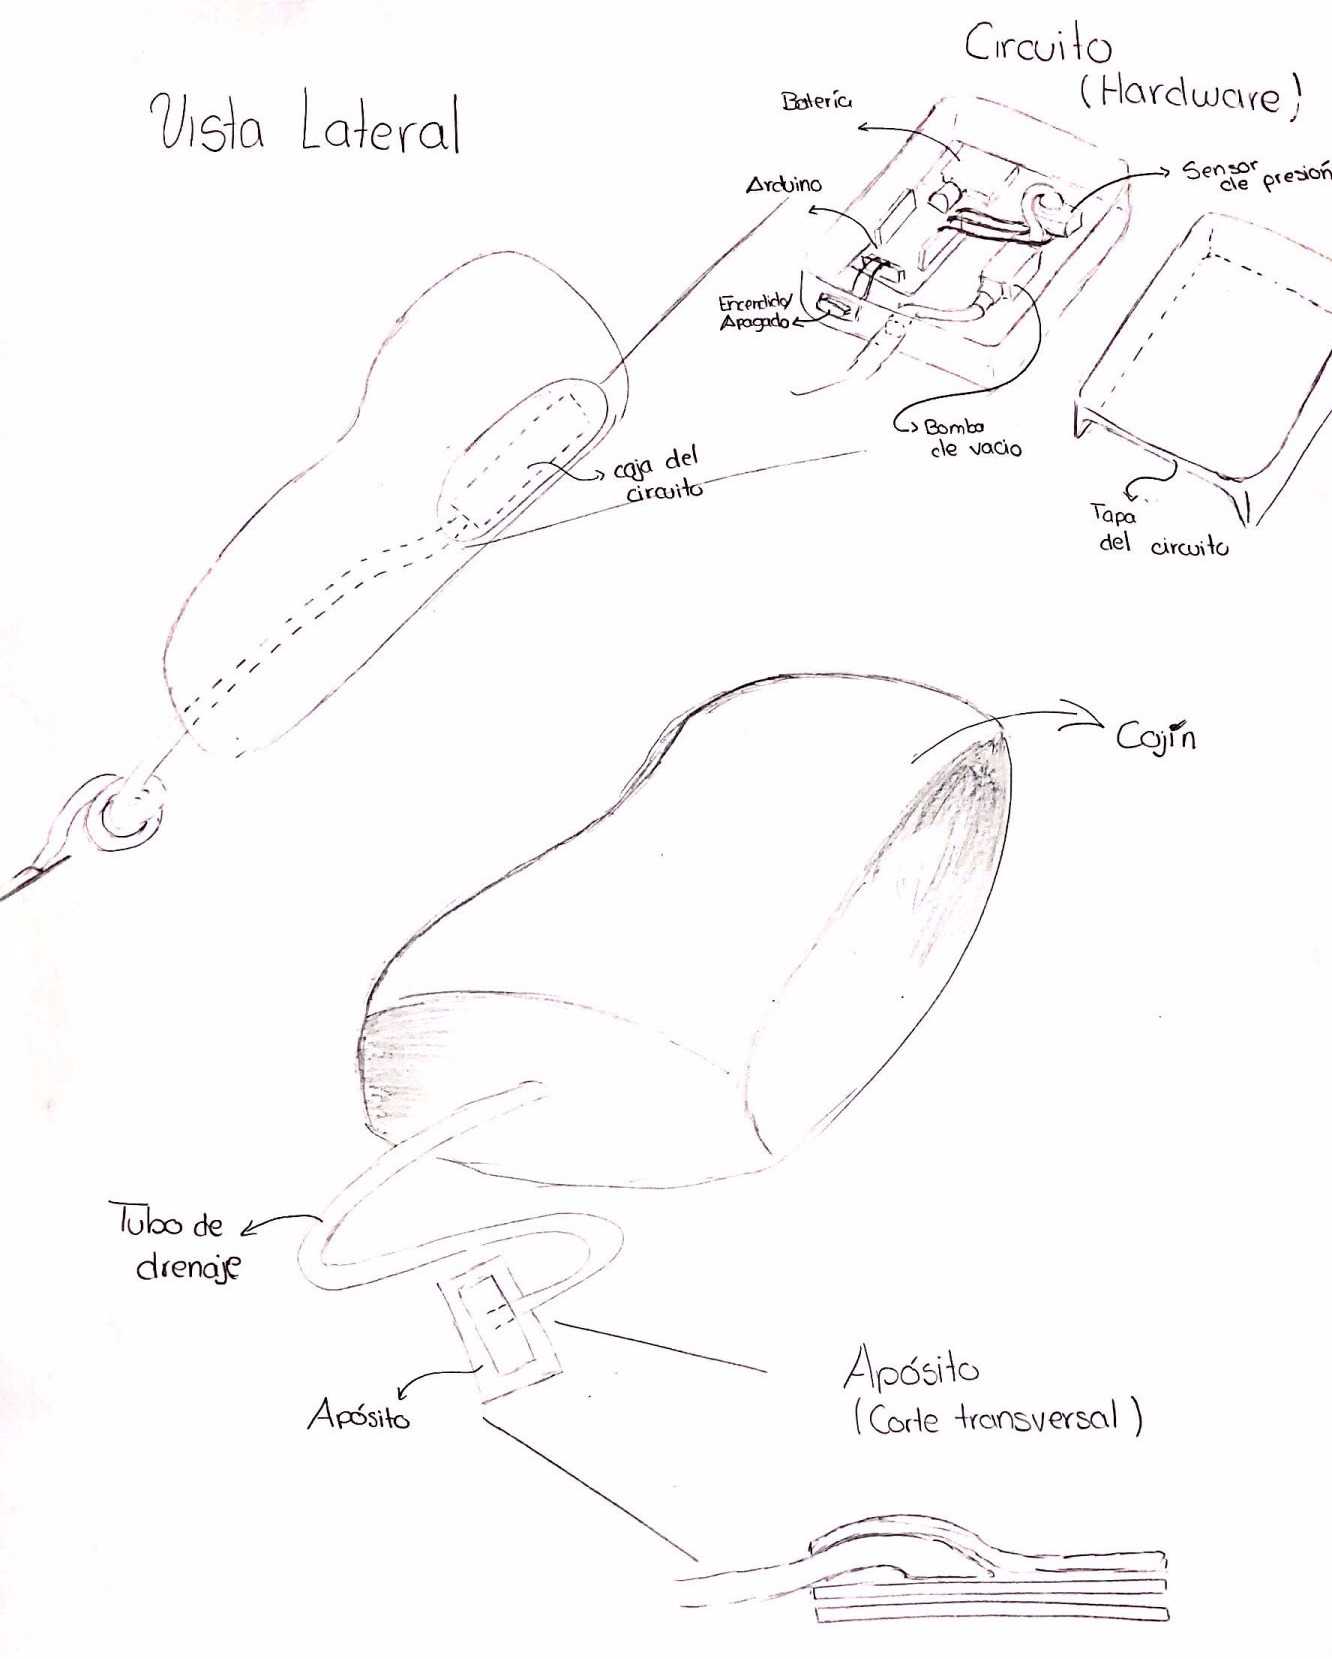 Circuito
(Hardware)
Vista Lateral
Batería
Arduino
Sensor
de presión
Encendido/
Apagado
Bomba
de vacio
caja del
circuito
Tapa
del circuito
Cojín
Tubo de
drenaje
Apósito
Apósito
(Corte transversal)